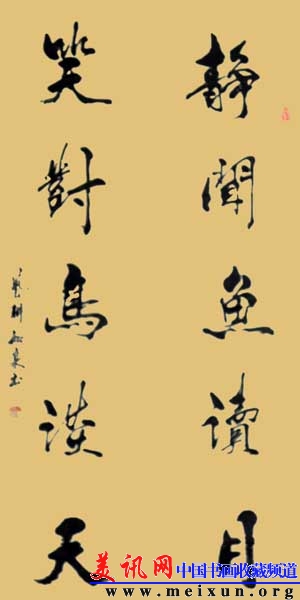 靜聞魚讀月
笑對鳥談天
美讯网 中国书画收藏频道
www.meixun.org